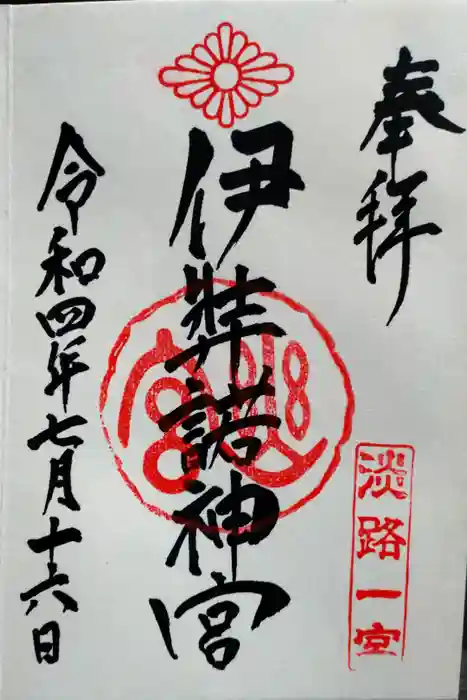 奉拝
淡路一宮
伊弉諾神宮
令和四年七月十六日